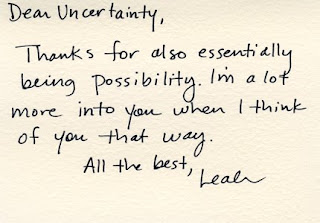 Dear Uncertainty,
Thanks for also essentially
being possibility. I'm a lot
more into you when I think
of you that way.
All the best,
Leah